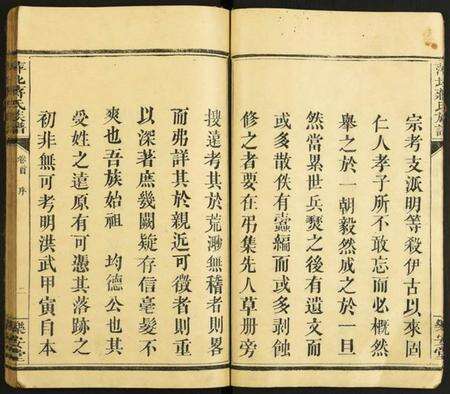 宗考支派明等殺伊古以來固
仁人孝子所不敢忘而必概然
舉之於一朝毅然成之於一旦
然當累世兵燹之後有遺文而
或多散佚有蠹編而或多剥蝕
修之者要在弔集先人草册旁
搜遠考其於荒渺無稽者則畧
而弗詳其於親近可徵者則重
以深著庶幾闕疑存信毫髮不
爽也吾族始祖 均德公也其
受姓之遠原有可憑其落跡之
初非無可考明洪武甲寅自本
萍北蔣氏族譜
卷首 序
二
樂安堂